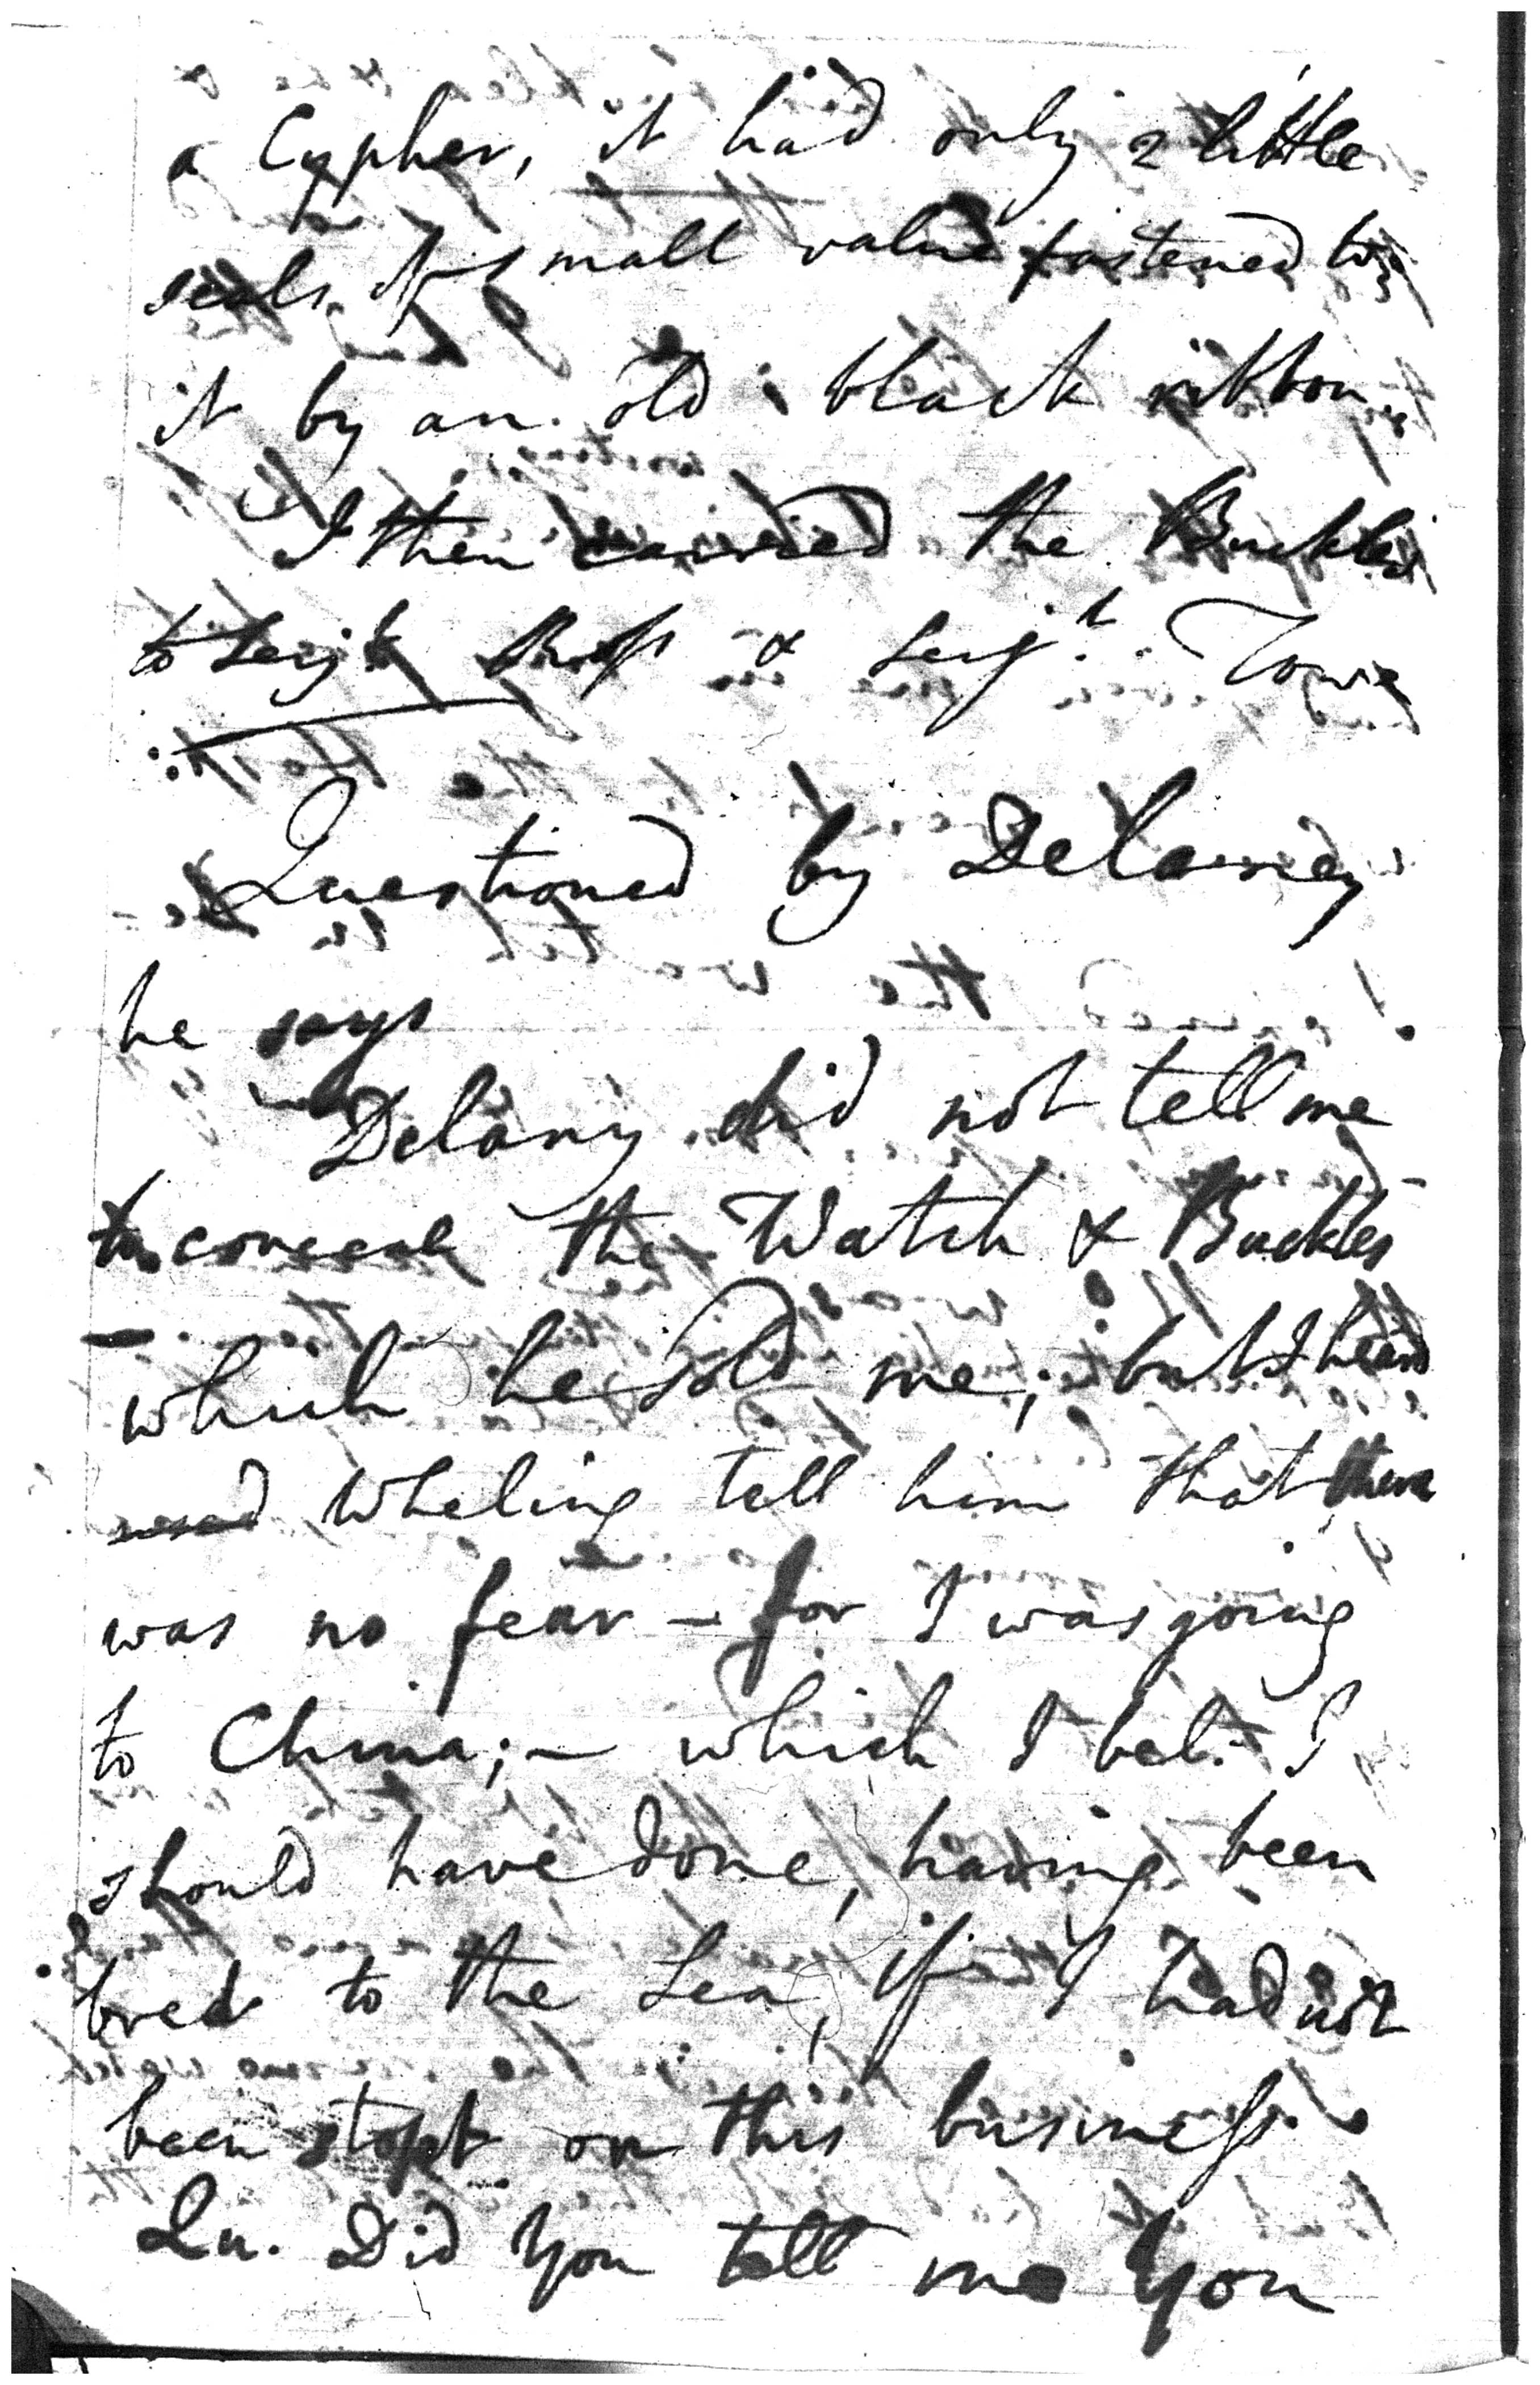 a Cypher, it had only 2 little
seals of small value fastened to
it by an old black ribbon.
I then carried the Buckles
to Serjt Ross & Serjt. Towie
Questioned by Delaney
he says
Delany did not tell me
to conceal the Watch & Buckles
which he sold me; but I heard
Wheling tell him that there
was no fear – for I was going
to China; – which I bel. I
should have done, having been
bred to the Sea, if I had not
been stopt on this business.
Qu. Did You tell me You